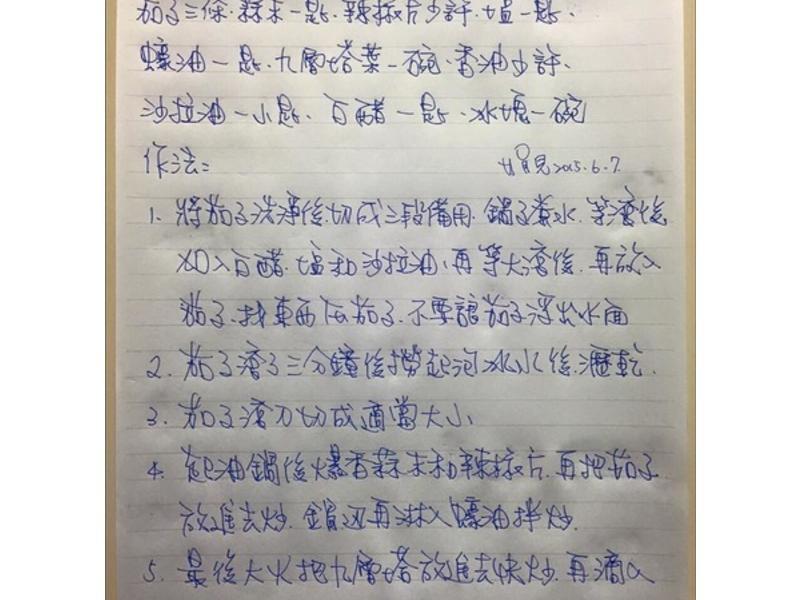 茄子三條、蒜末一匙、辣椒片少許、塩一匙、
蠔油一匙、九層塔葉一碗、香油少許、
沙拉油一小匙、白醋一匙、冰塊一碗
作法:
2015.6.7
1. 將茄子洗淨後切成三段備用、鍋子煮水、等滾後
加入白醋、塩和沙拉油、再等大滾後、再放入
茄子、找東西压茄子、不要讓茄子浮出水面
2. 茄子滾了三分鐘後撈起泡冰水後、瀝乾、
3. 茄子滾刀切成適當大小
4. 起油鍋後爆香蒜末和辣椒片、再把茄子
放進去炒、鍋边再淋入蠔油拌炒、
5. 最後大火把九層塔放進去快炒、再滴入